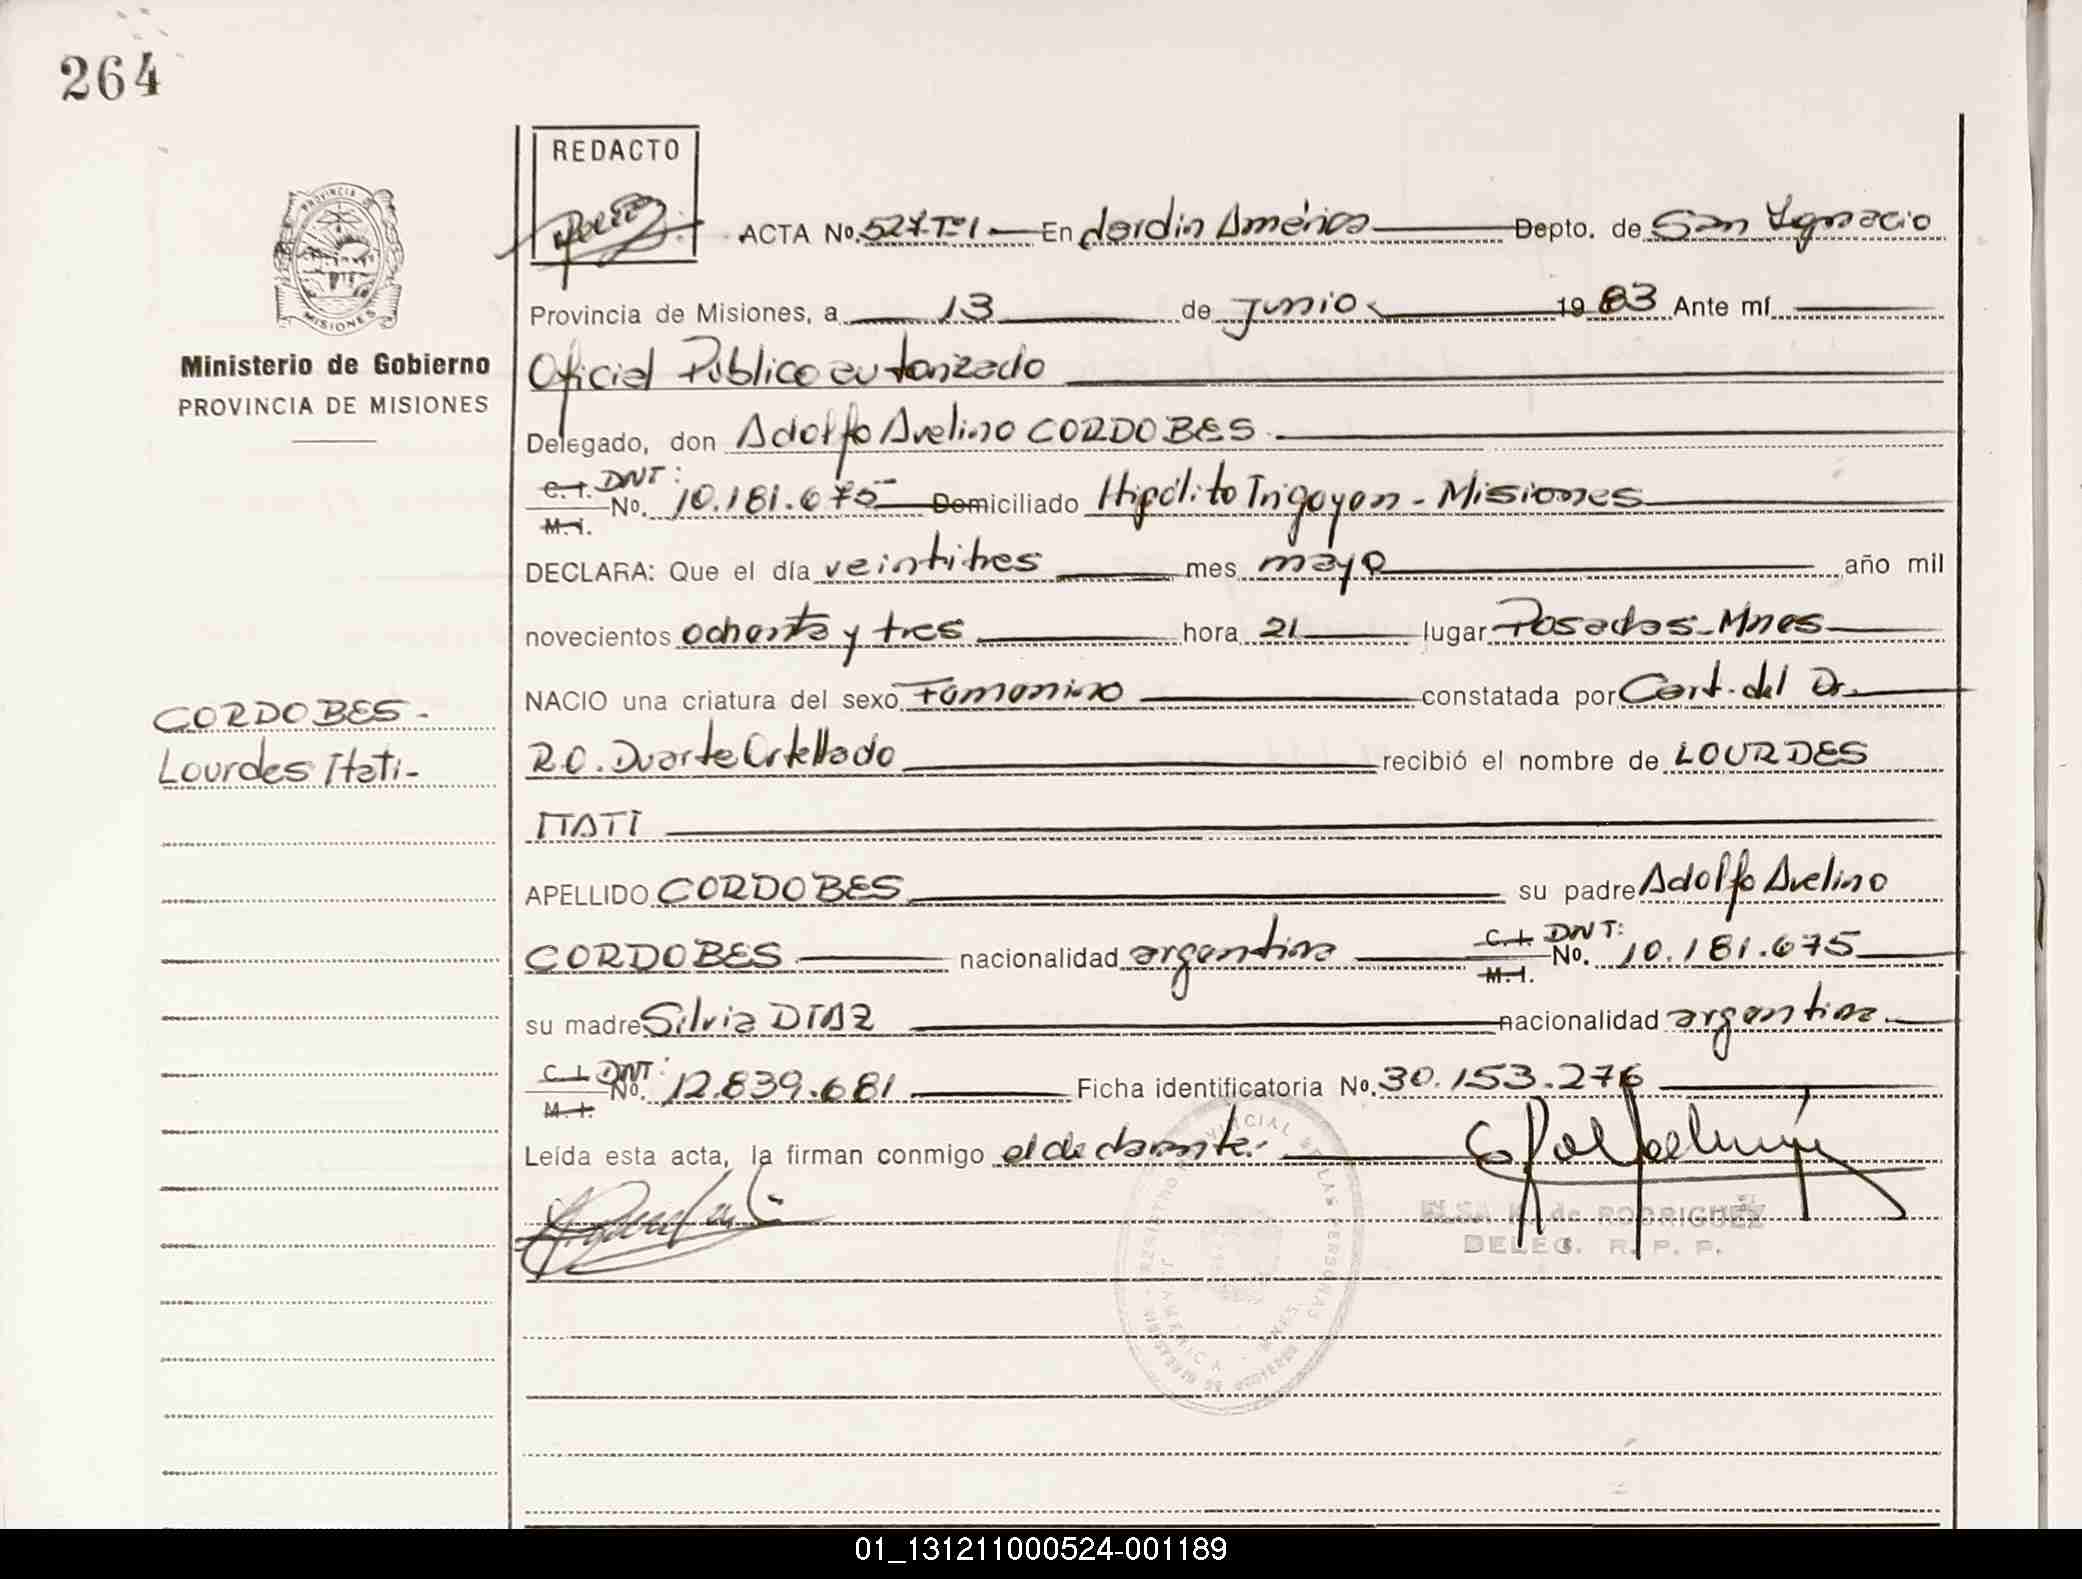 264
REDACTO
PROVINCIA
MISIONES
Ministerio de Gobierno
PROVINCIA DE MISIONES
ACTA No. 527 Tº I En Jardin América Depto. de San Ignacio
Provincia de Misiones, a 13 de Junio 19 83 Ante mí
Oficial Publico autorizado
Delegado, don Adolfo Avelino CORDOBES
C.I. DNI:
No. 10.181.675 Domiciliado Hipólito Irigoyen - Misiones
M.I.
DECLARA: Que el día veintitres mes mayo año mil
novecientos ochenta y tres hora 21 lugar Posadas - Mnes
NACIO una criatura del sexo Femenino constatada por Cert. del Dr.
CORDOBES -
Lourdes Itati -
R.O. Duarte Ortellado recibió el nombre de LOURDES
ITATI
APELLIDO CORDOBES su padre Adolfo Avelino
CORDOBES nacionalidad argentina C.I. DNI: No. 10.181.675
M.I.
su madre Silvia DIAZ nacionalidad argentina
C.I. DNI:
No. 12.839.681 Ficha identificatoria No. 30.153.276
M.I.
Leída esta acta, la firman conmigo el declarante.
ELSA K. de RODRIGUEZ
DELEG. R. P. P.
REGISTRO PROVINCIAL DE LAS PERSONAS
J. AMERICA - MNES.
01_131211000524-001189